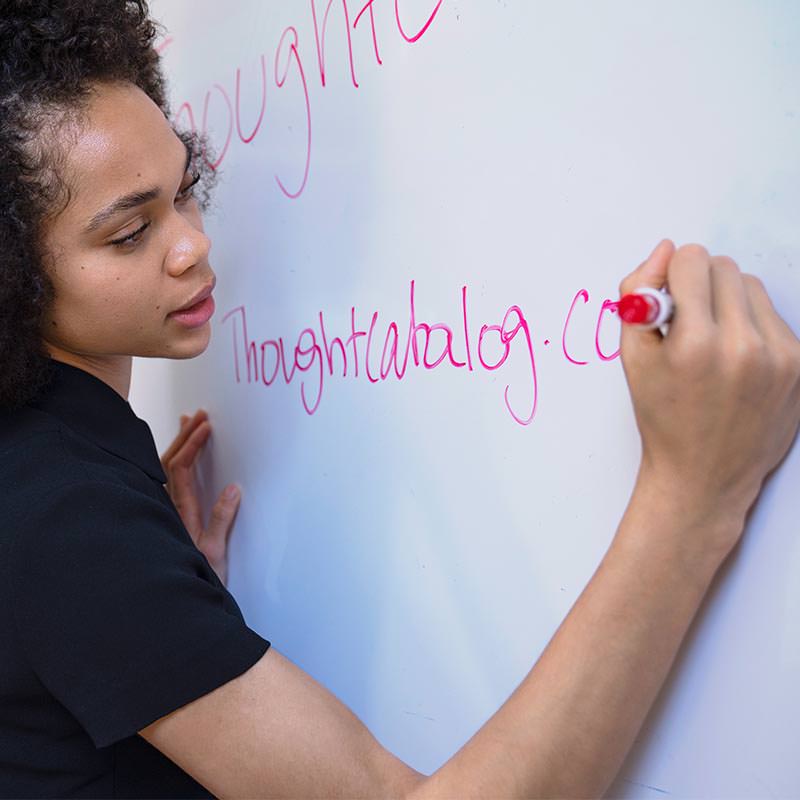 Thought C
Thoughtcatalog.co